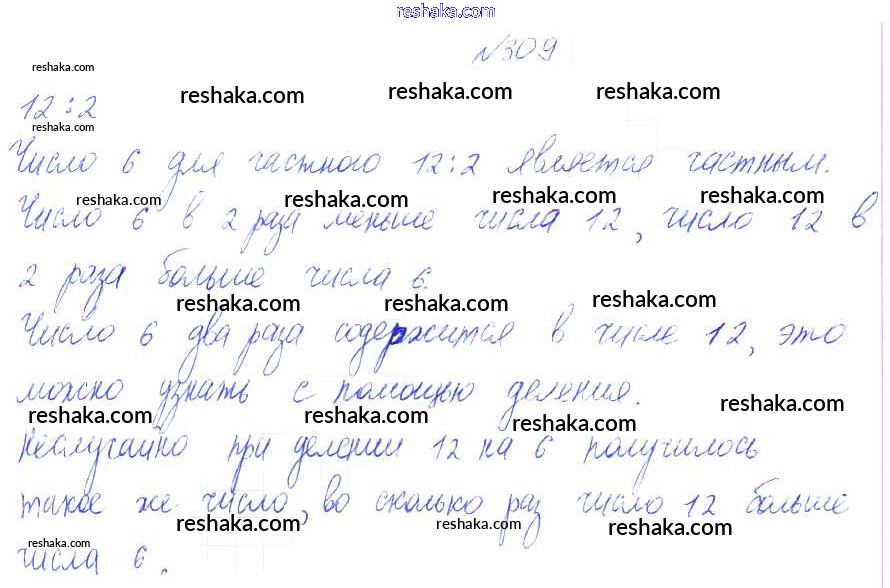 reshaka.com
№309
reshaka.com
reshaka.com reshaka.com reshaka.com
12:2
reshaka.com
Число 6 для частного 12:2 является частным.
reshaka.com reshaka.com reshaka.com reshaka.com
Число 6 в 2 раза меньше числа 12, число 12 в
2 раза больше числа 6.
reshaka.com reshaka.com reshaka.com
Число 6 два раза содержится в числе 12, это
можно узнать с помощью деления.
reshaka.com reshaka.com reshaka.com reshaka.com
Неслучайно при делении 12 на 6 получилось
такое же число, во сколько раз число 12 больше
reshaka.com reshaka.com reshaka.com
reshaka.com
числа 6.